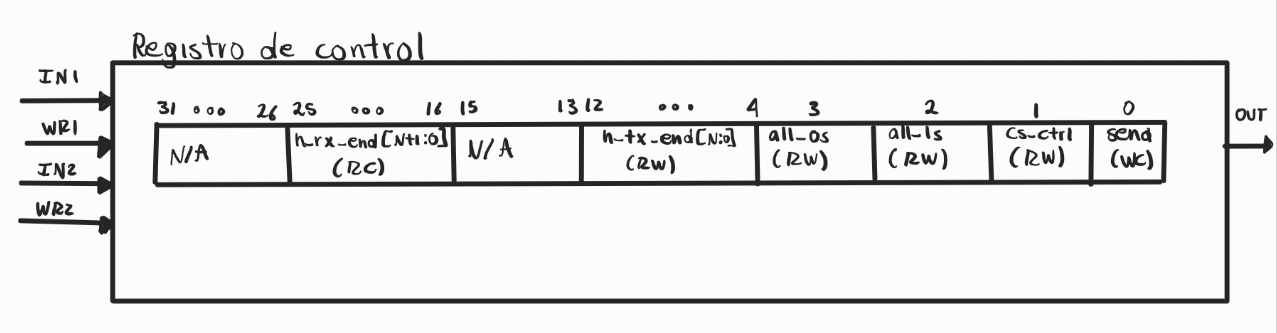 Registro de control
IN1
WR1
IN2
WR2
OUT
31 ... 26 25 ... 16 15 13 12 ... 4 3 2 1 0
N/A
h_rx_end[N+1:0]
(RC)
N/A
h_tx_end[N:0]
(RW)
all_0s
(RW)
all_1s
(RW)
cs_ctrl
(RW)
send
(WC)